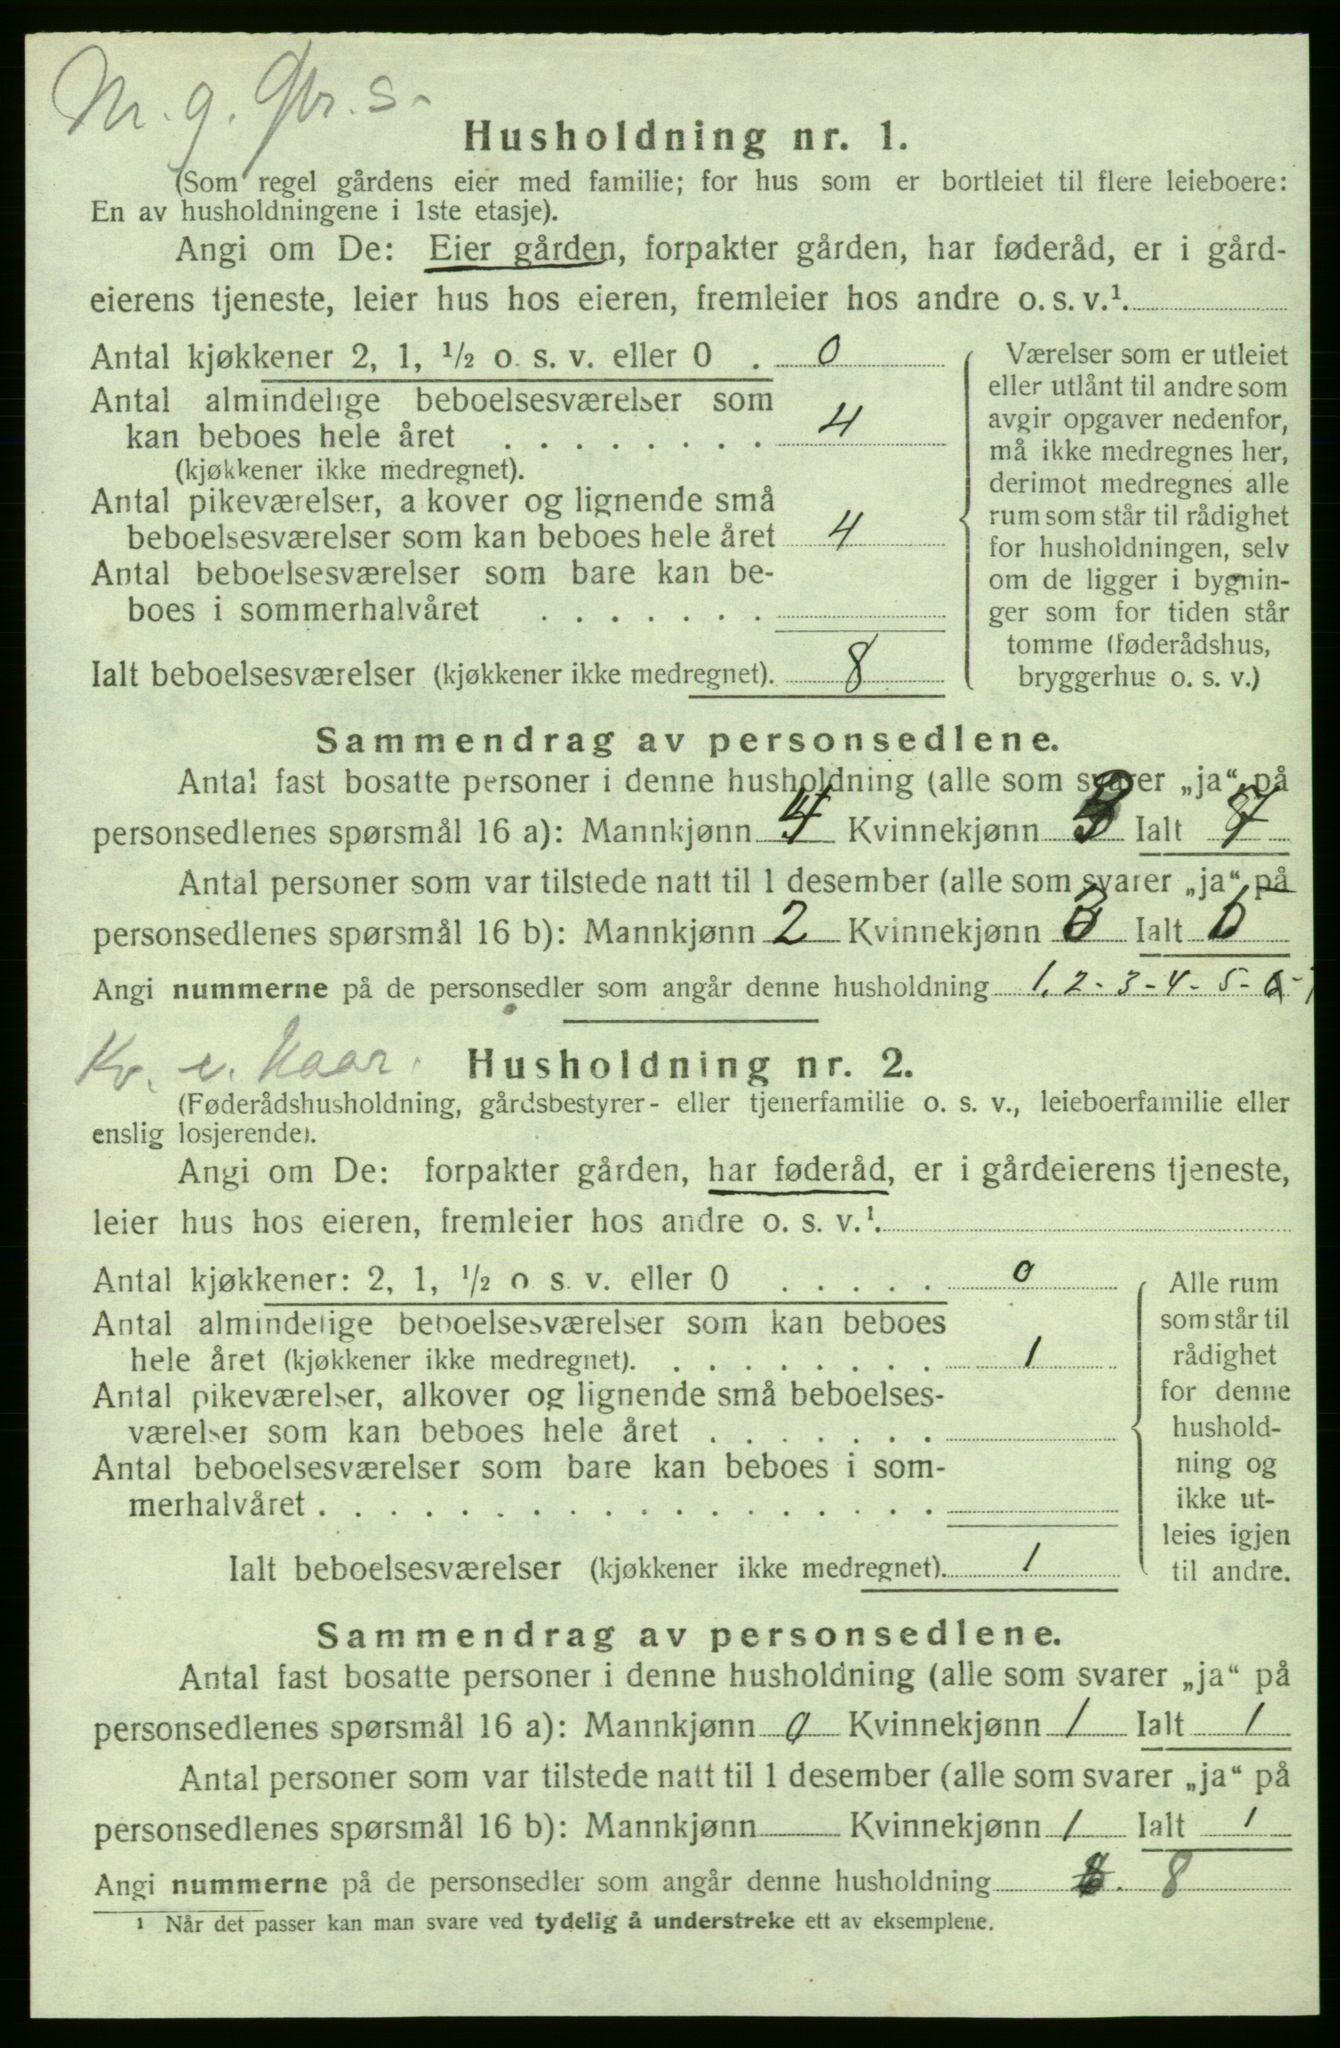 M. g. Gbr. s.
Husholdning nr. 1.
(Som regel gårdens eier med familie; for hus som er bortleiet til flere leieboere:
En av husholdningene i 1ste etasje).
Angi om De: Eier gården, forpakter gården, har føderåd, er i gård-
eierens tjeneste, leier hus hos eieren, fremleier hos andre o. s. v.¹
Antal kjøkkener 2, 1, ½ o. s. v. eller 0 . 0
Antal almindelige beboelsesværelser som
kan beboes hele året . . . . . . . . 4
(kjøkkener ikke medregnet).
Antal pikeværelser, a kover og lignende små
beboelsesværelser som kan beboes hele året 4
Antal beboelsesværelser som bare kan be-
boes i sommerhalvåret . . . . . . .
Ialt beboelsesværelser (kjøkkener ikke medregnet). 8
Værelser som er utleiet
eller utlånt til andre som
avgir opgaver nedenfor,
må ikke medregnes her,
derimot medregnes alle
rum som står til rådighet
for husholdningen, selv
om de ligger i bygnin-
ger som for tiden står
tomme (føderådshus,
bryggerhus o. s. v.)
Sammendrag av personsedlene.
Antal fast bosatte personer i denne husholdning (alle som svarer „ja“ på
personsedlenes spørsmål 16 a): Mannkjønn 4 Kvinnekjønn 3 Ialt 7
Antal personer som var tilstede natt til 1 desember (alle som svarer „ja“ på
personsedlenes spørsmål 16 b): Mannkjønn 2 Kvinnekjønn 3 Ialt
Angi nummerne på de personsedler som angår denne husholdning 1, 2 - 3 - 4 - 5 - 6 - 7
Kv. e. kaar.
Husholdning nr. 2.
(Føderådshusholdning, gårdsbestyrer- eller tjenerfamilie o. s. v., leieboerfamilie eller
enslig losjerende).
Angi om De: forpakter gården, har føderåd, er i gårdeierens tjeneste,
leier hus hos eieren, fremleier hos andre o. s. v.¹
Antal kjøkkener: 2, 1, ½ o. s. v. eller 0 . . . . . 0
Antal almindelige beboelsesværelser som kan beboes
hele året (kjøkkener ikke medregnet). . . . . . . . . 1
Antal pikeværelser, alkover og lignende små beboelses-
værelser som kan beboes hele året . . . . . . .
Antal beboelsesværelser som bare kan beboes i som-
merhalvåret . . . . . . . . . . . . . . . . . .
Ialt beboelsesværelser (kjøkkener ikke medregnet). 1
Alle rum
som står til
rådighet
for denne
hushold-
ning og
ikke ut-
leies igjen
til andre.
Sammendrag av personsedlene.
Antal fast bosatte personer i denne husholdning (alle som svarer „ja“ på
personsedlenes spørsmål 16 a): Mannkjønn 0 Kvinnekjønn 1 Ialt 1
Antal personer som var tilstede natt til 1 desember (alle som svarer „ja“ på
personsedlenes spørsmål 16 b): Mannkjønn Kvinnekjønn 1 Ialt 1
Angi nummerne på de personsedler som angår denne husholdning 8
¹ Når det passer kan man svare ved tydelig å understreke ett av eksemplene.